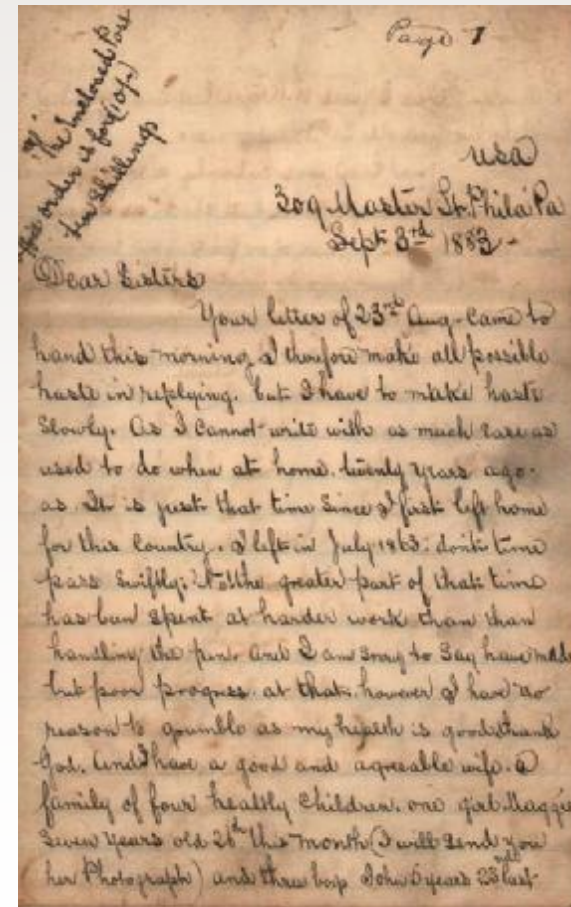 Page 1
The Inclosed Post
office order is for (10/-)
ten Shillings
USA
309 Master St. Phila Pa
Sept 3rd 1883 -
Dear Sisters
Your letter of 23rd Aug - Came to
hand this morning, I therefore make all possible
haste in replying. but I have to make haste
Slowly. As I Cannot write with as much ease as
used to do when at home. twenty years ago.
as. It is just that time Since I first left home
for this Country. I left in July 1863. don't time
pass Swiftly. the greater part of that time
has been Spent at harder work than than
handling the pen. and I am sorry to Say have made
but poor progress at that. however I have no
reason to grumble as my health is good, thank
God. And I have a good and agreeable wife. a
family of four healthy Children. one girl Maggie
Seven years old 26th this month (I will Send you
her Photograph) and three boys John 5 years 23rd last